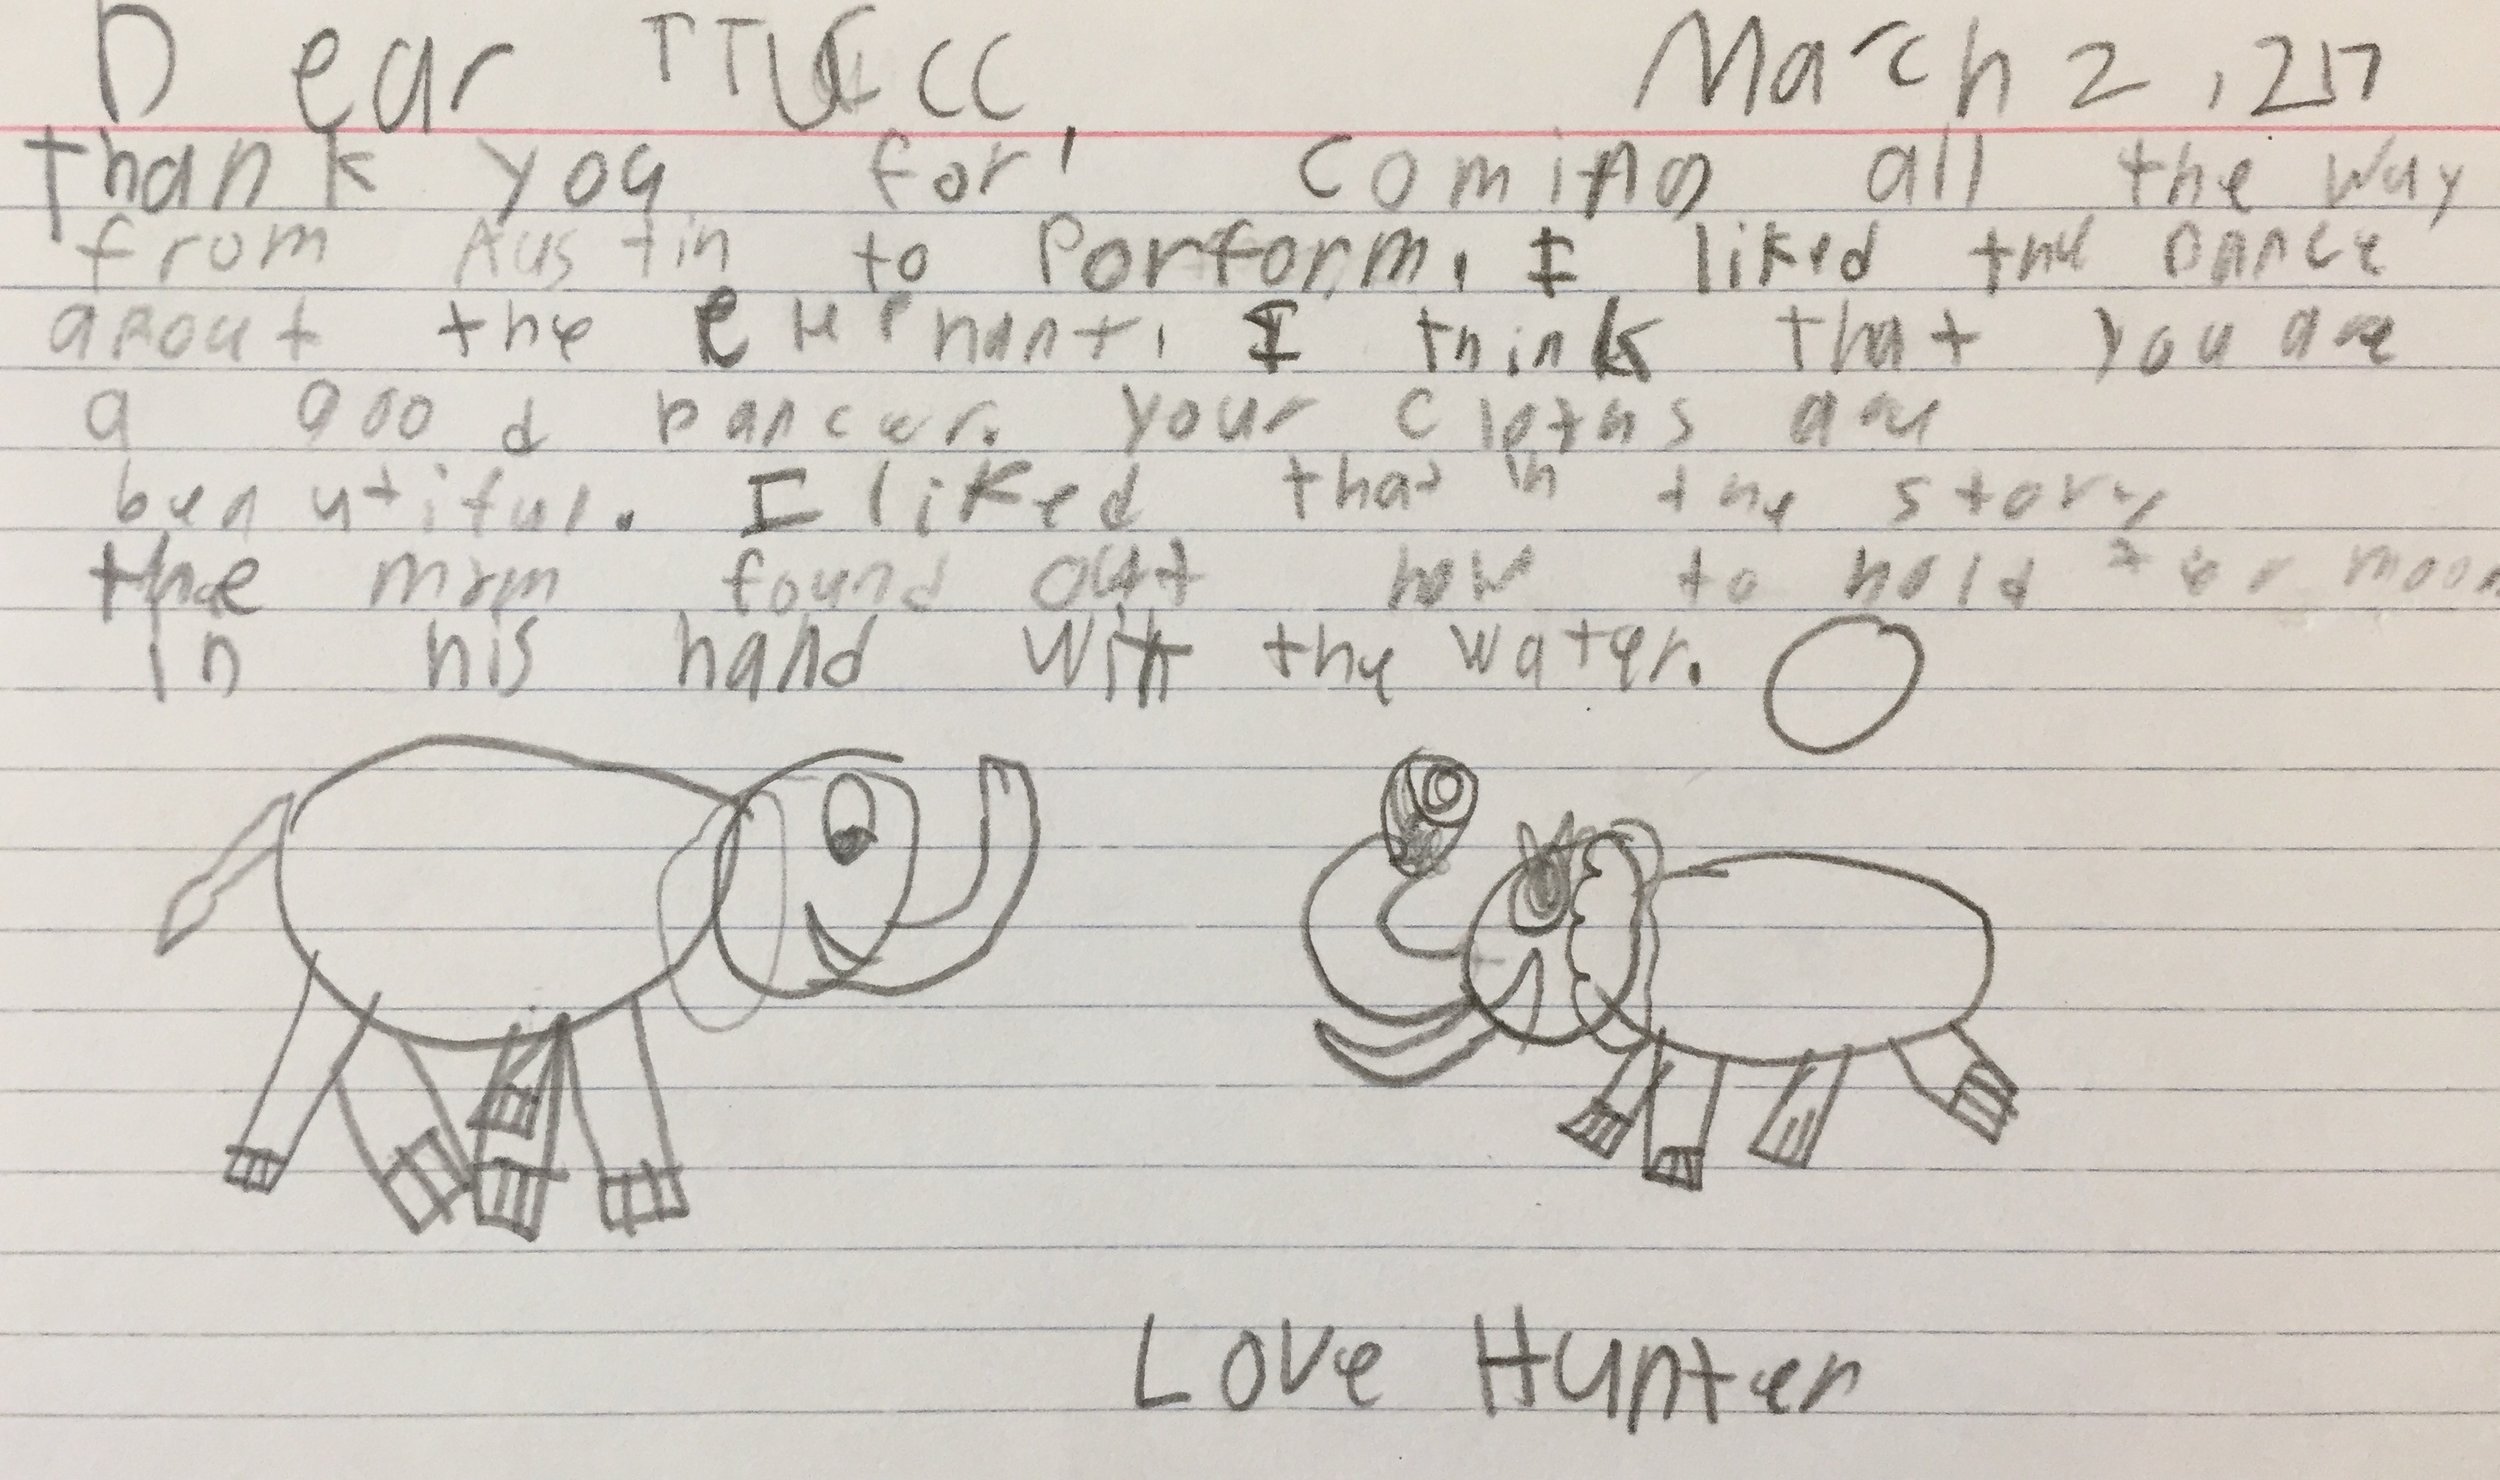 Dear TTUCC, March 2, 217
thank you for coming all the way
from Austin to Porform. I liked the Dance
about the elephant. I think that you are
a good Dancer. your cloths are
beautiful. I liked that in the story
the mom found out how to hold moon
in his hand with the water.
Love Hunter